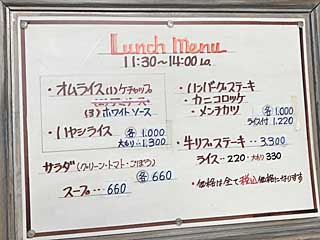 Lunch Menu
11:30~14:00 L.O.
・オムライス(い)ケチャップ
(ろ)ホワイトソース
・ハヤシライス 各 1,000
大もり 1,300
サラダ(グリーン・トマト・ごぼう)
各 660
スープ・・660
・ハンバーグステーキ
・カニコロッケ
・メンチカツ 各 1,000
ライス付 1,220
・牛リブステーキ・・3,300
ライス・・220・大もり 330
・価格は全て税込価格になります